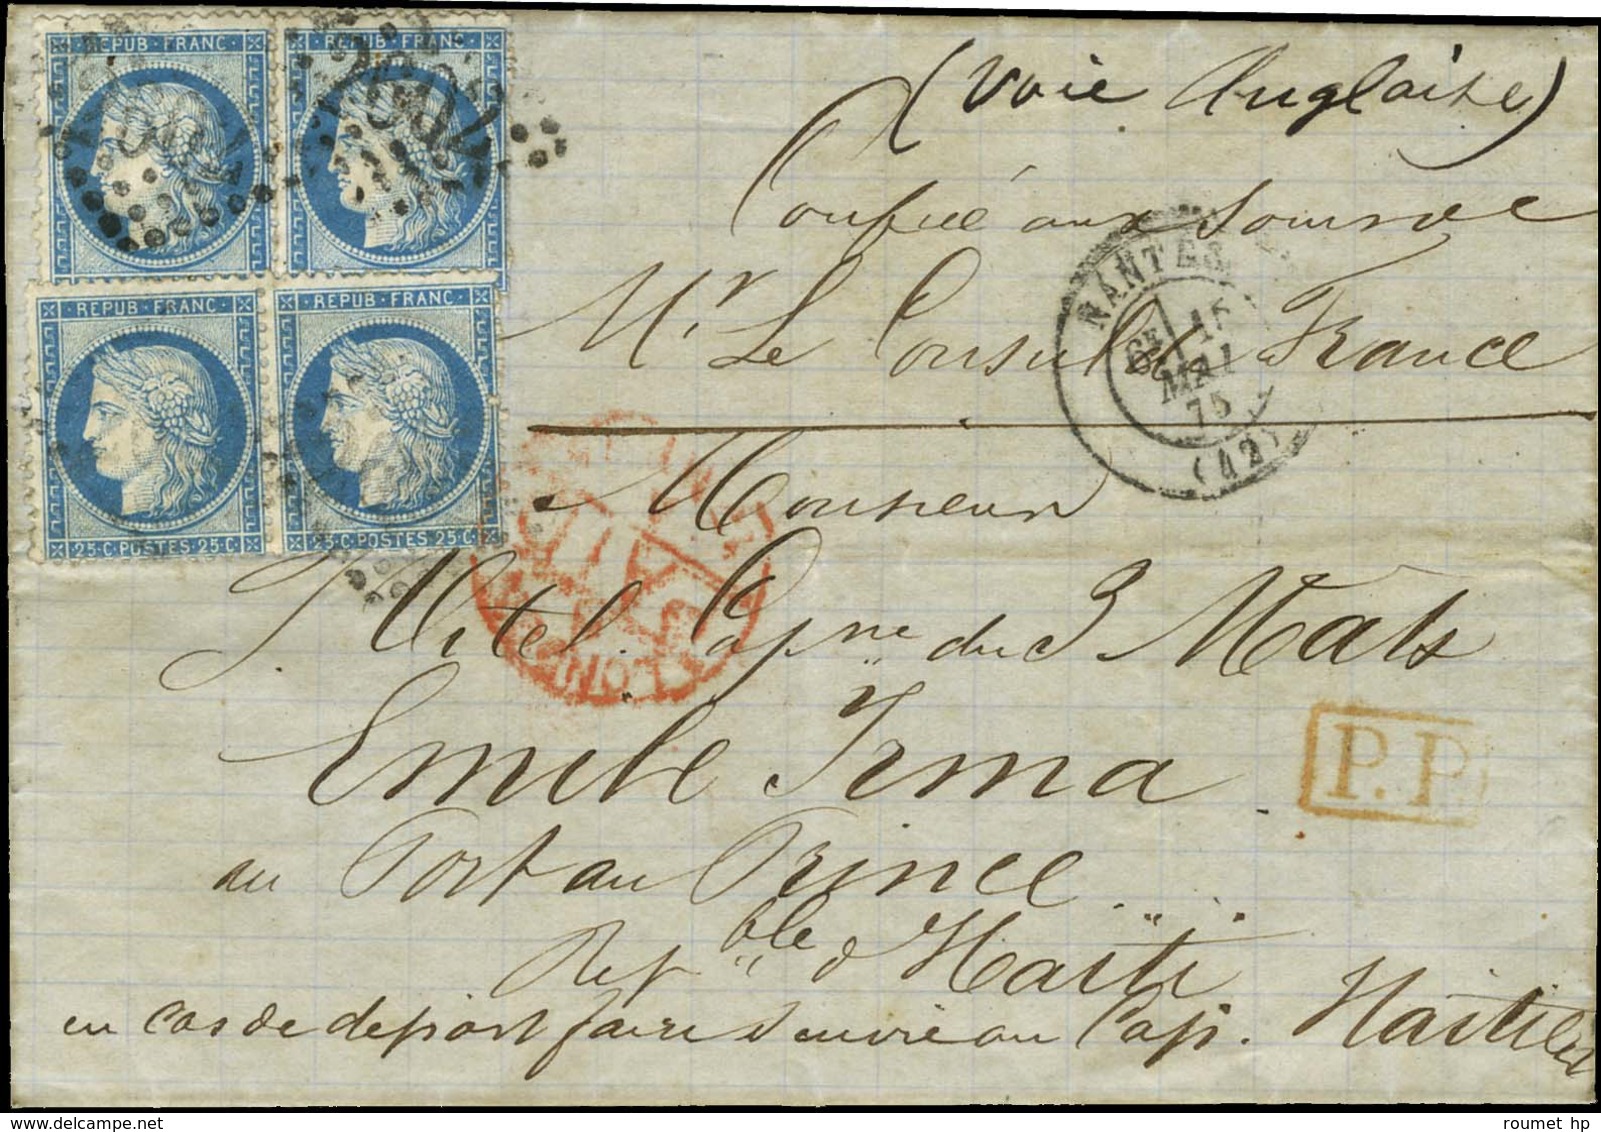 REPUB·FRANC·
REPUB·FRANC·
2602
(Voie Anglaise)
Confiée aux soins de
Mr Le Consul de France
REPUB·FRANC·
REPUB·FRANC·
25·C·POSTES·25·C·
25·C·POSTES·25·C·
NANTES
6E
MAI
75
(42)
Monsieur
Capne du 3 Mats
Emile Irma
P.P.
au Port au Prince
Repble d'Haïti
en cas de départ faire suivre au Cap. Haïtien
roumet hp